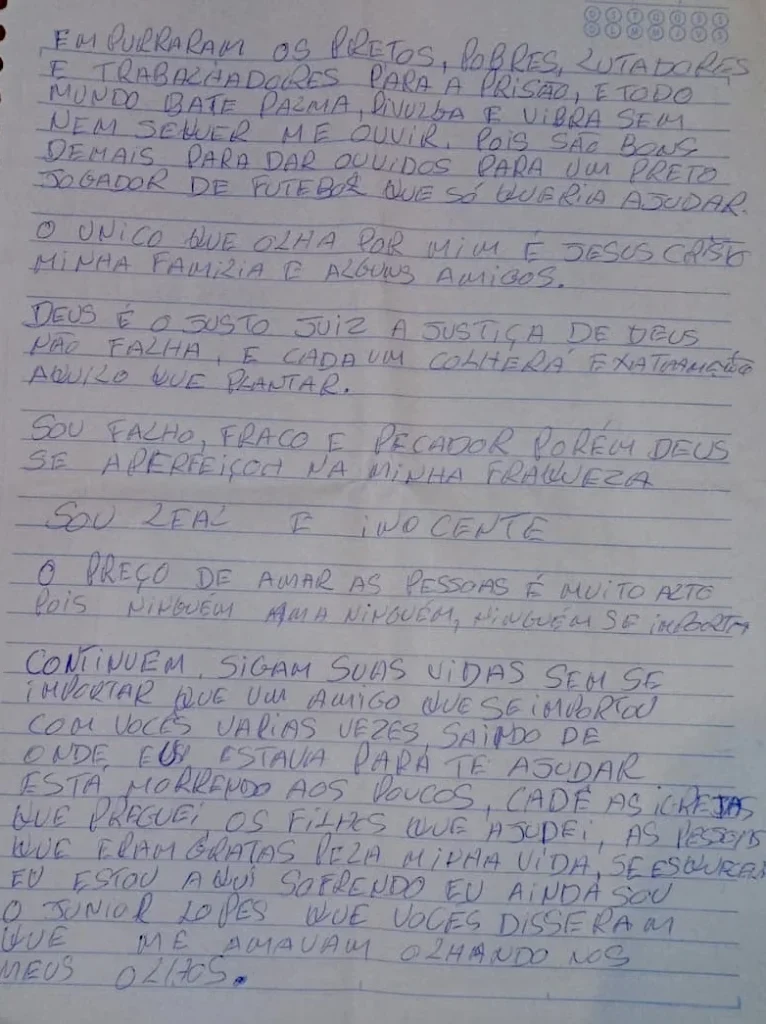 EMPURRARAM OS PRETOS, POBRES, LUTADORES
E TRABALHADORES PARA A PRISÃO, E TODO
MUNDO BATE PALMA, DIVULGA E VIBRA SEM
NEM SEQUER ME OUVIR. POIS SÃO BONS
DEMAIS PARA DAR OUVIDOS PARA UM PRETO
JOGADOR DE FUTEBOL QUE SÓ QUERIA AJUDAR.
O UNICO QUE OLHA POR MIM É JESUS CRISTO
MINHA FAMILIA E ALGUNS AMIGOS.
DEUS É O JUSTO JUIZ A JUSTIÇA DE DEUS
NÃO FALHA, E CADA UM COLHERÁ EXATAMENTE
AQUILO QUE PLANTAR.
SOU FALHO, FRACO E PECADOR PORÉM DEUS
SE APERFEIÇOA NA MINHA FRAQUEZA
SOU LEAL E INOCENTE
O PREÇO DE AMAR AS PESSOAS É MUITO ALTO
POIS NINGUÉM AMA NINGUÉM, NINGUÉM SE IMPORTA
CONTINUEM, SIGAM SUAS VIDAS SEM SE
IMPORTAR QUE UM AMIGO QUE SE IMPORTOU
COM VOCÊS VARIAS VEZES, SAINDO DE
ONDE EU ESTAVA PARA TE AJUDAR
ESTÁ MORRENDO AOS POUCOS, CADÊ AS IGREJAS
QUE PREGUEI OS FILHOS QUE AJUDEI, AS PESSOAS
QUE ERAM GRATAS PELA MINHA VIDA, SE ESQUECEU
EU ESTOU AQUI SOFRENDO EU AINDA SOU
O JUNIOR LOPES QUE VOCES DISSERAM
QUE ME AMAVAM OLHANDO NOS
MEUS OLHOS.